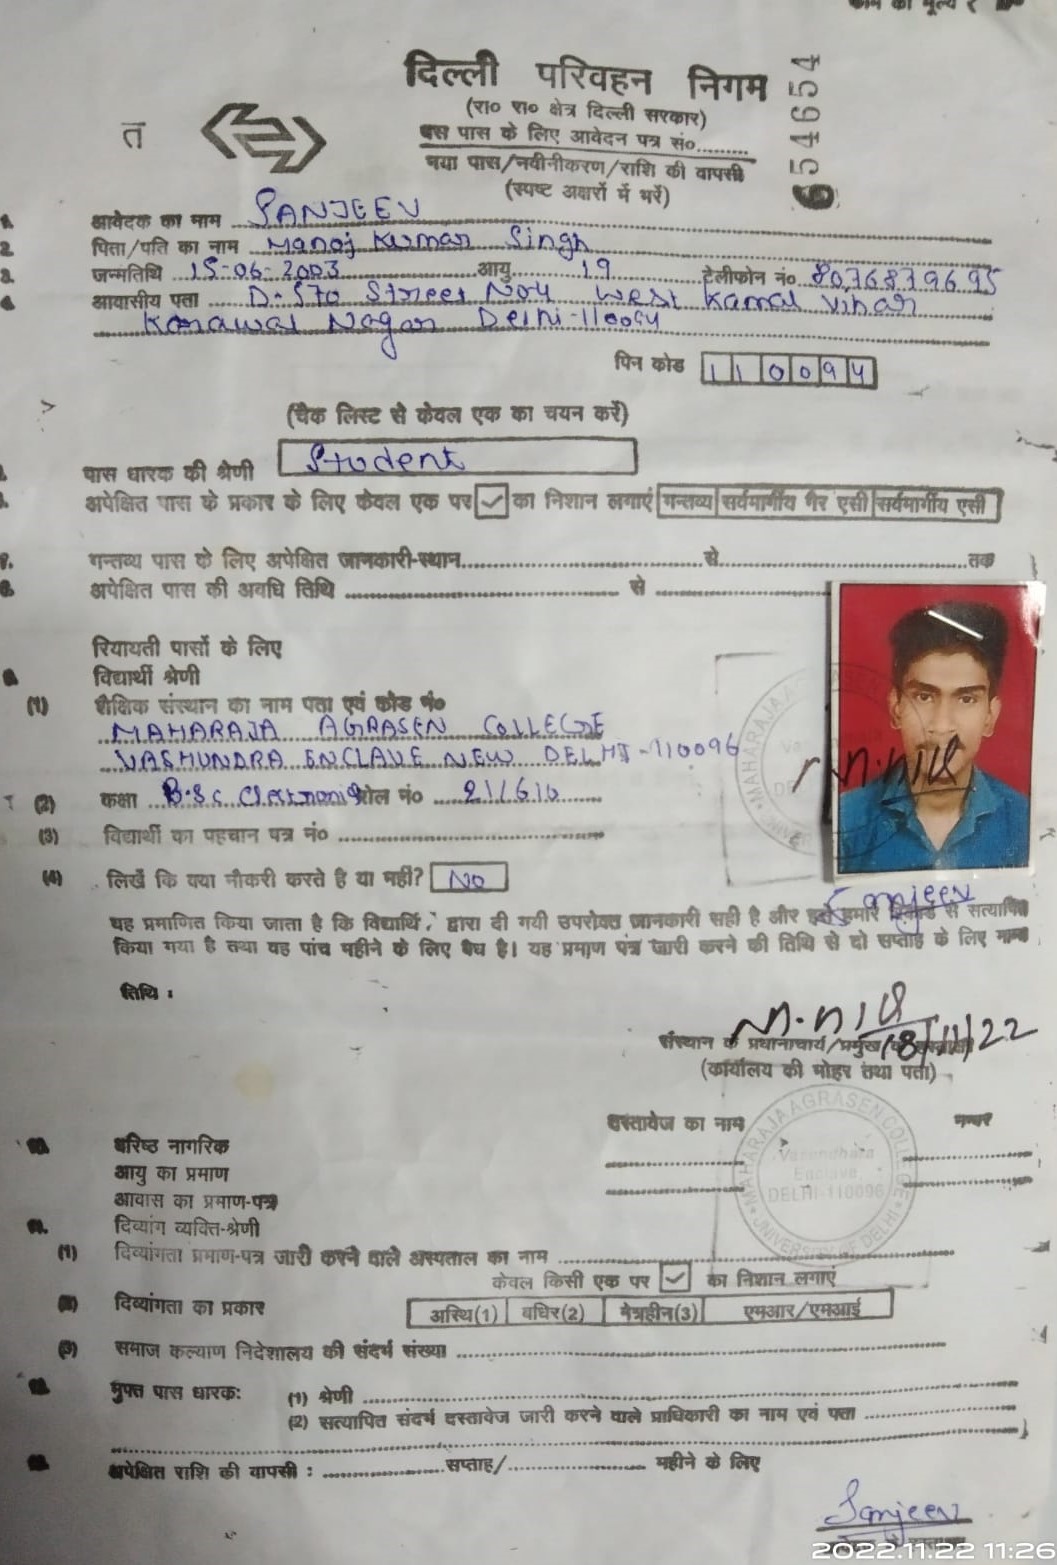 फार्म का मूल्य र
दिल्ली परिवहन निगम
(रा० रा० क्षेत्र दिल्ली सरकार)
त
बस पास के लिए आवेदन पत्र सं०.........
654654
नया पास/नवीनीकरण/राशि की वापसी
(स्पष्ट अक्षरों में भरें)
1. आवेदक का नाम SANJEEV
2. पिता/पति का नाम Manoj Kumar Singh
3. जन्मतिथि 15-06-2003 आयु 19 टेलीफोन नं० 8076879695
4. आवासीय पता D-570 Street No4 West Kamal Vihar
Karawal Nagar Delhi-110094
पिन कोड 110094
(चैक लिस्ट से केवल एक का चयन करें)
पास धारक की श्रेणी Student
अपेक्षित पास के प्रकार के लिए केवल एक पर ✓ का निशान लगाएं गन्तव्य सर्वमार्गीय गैर एसी सर्वमार्गीय एसी
गन्तव्य पास के लिए अपेक्षित जानकारी-स्थान.........से.........तक
अपेक्षित पास की अवधि तिथि ......... से .........
रियायती पासों के लिए
विद्यार्थी श्रेणी
(1) शैक्षिक संस्थान का नाम पता एवं कोड नं०
MAHARAJA AGRASEN COLLEGE
VASHUNDRA ENCLAVE NEW DELHI-110096
(2) कक्षा B.Sc Electronic रोल नं० 211610
(3) विद्यार्थी का पहचान पत्र नं० .........
(4) लिखें कि क्या नौकरी करते है या नहीं? NO
Sanjeev
यह प्रमाणित किया जाता है कि विद्यार्थि, द्वारा दी गयी उपरोक्त जानकारी सही है और इसे हमारे रिकार्ड से सत्यापित
किया गया है तथा यह पांच महीने के लिए वैध है। यह प्रमाण पत्र जारी करने की तिथि से दो सप्ताह के लिए मान्य
तिथि :
18/11/22
संस्थान के प्रधानाचार्य/प्रमुख के हस्ताक्षर
(कार्यालय की मोहर तथा पता)
MAHARAJA AGRASEN COLLEGE
Vasundhara
Enclave
DELHI-110096
UNIVERSITY OF DELHI
दस्तावेज का नाम नम्बर
वरिष्ठ नागरिक
आयु का प्रमाण
आवास का प्रमाण-पत्र
दिव्यांग व्यक्ति-श्रेणी
(1) दिव्यांगता प्रमाण-पत्र जारी करने वाले अस्पताल का नाम .........
केवल किसी एक पर ✓ का निशान लगाएं
(2) दिव्यांगता का प्रकार अस्थि(1) बधिर(2) नेत्रहीन(3) एमआर/एमआई
(3) समाज कल्याण निदेशालय की संदर्भ संख्या .........
मुफ्त पास धारक: (1) श्रेणी .........
(2) सत्यापित संदर्भ दस्तावेज जारी करने वाले प्राधिकारी का नाम एवं पता .........
अपेक्षित राशि की वापसी : .........सप्ताह/......... महीने के लिए
Sanjeev
2022.11.22 11:26